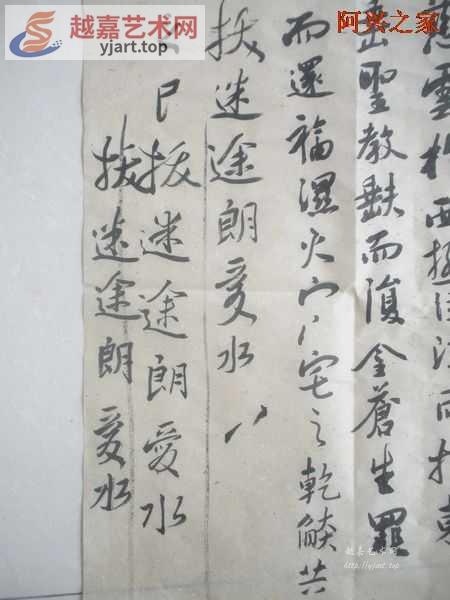 越嘉艺术网
yjart.top
阿兴之家
雲於西極注法雨於東
垂聖教缺而復全蒼生罪
而還福濕火宅之乾燄共
拔迷途朗愛水
拔迷途朗愛水
拔迷途朗愛水
越嘉艺术网
http://yjart.top